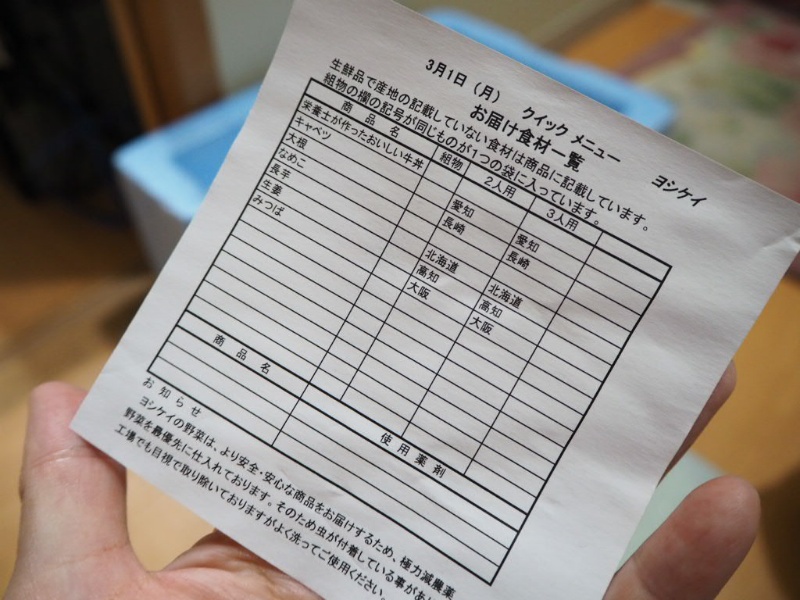 3月1日（月） クイックメニュー ヨシケイ
お届け食材一覧
生鮮品で産地の記載していない食材は商品に記載しています。
組物の欄の記号が同じものが1つの袋に入っています。
商品名 組物 2人用 3人用
栄養士が作ったおいしい牛丼
キャベツ 愛知 愛知
大根 長崎 長崎
なめこ
長芋 北海道 北海道
生姜 高知 高知
みつば 大阪 大阪
商品名 使用薬剤
お知らせ
ヨシケイの野菜は、より安全・安心な商品をお届けするため、極力減農薬
野菜を最優先に仕入れております。そのため虫が付着している事があり
工場でも目視で取り除いておりますがよく洗ってご使用ください。